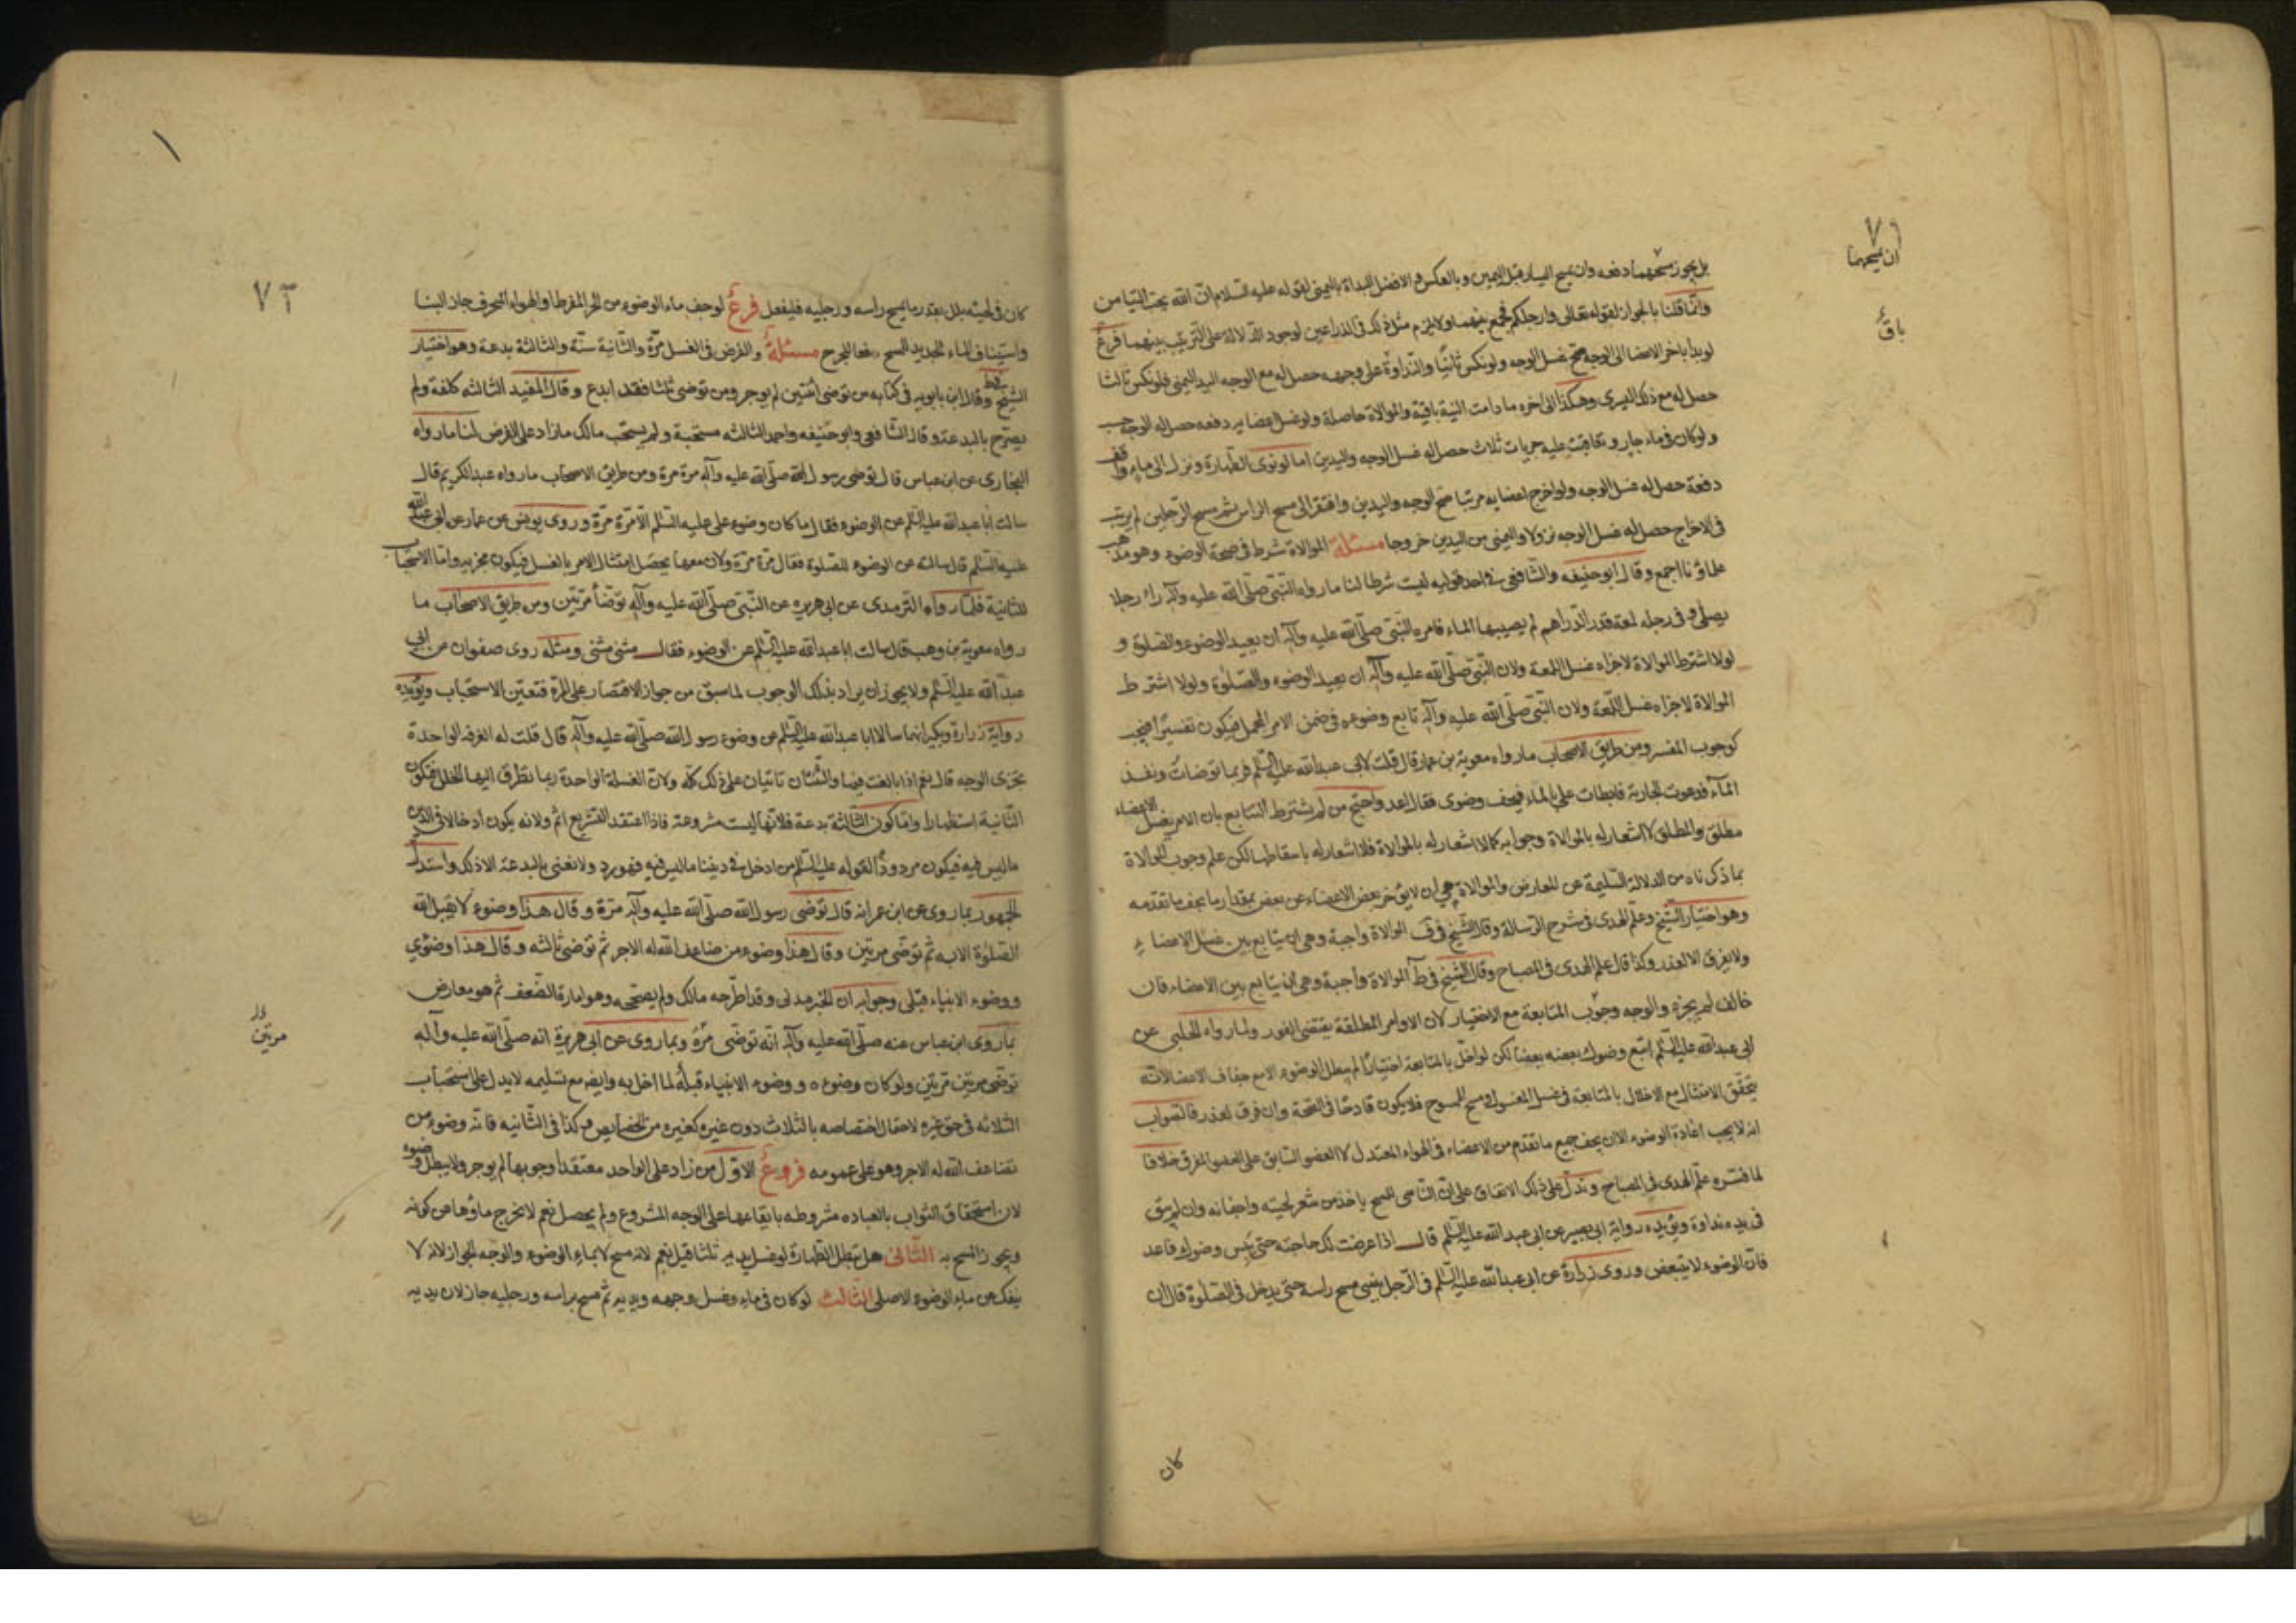 بل يجوز مسحهما دفعه وان يمسح اليسار قبل اليمين وبالعكس والافضل البداة باليمنى لقوله عليه السلام ان الله يحب التيامن
وانما قلنا بالجواز لقوله تعالى وارجلكم فجمع بينهما ولا يلزم مثل ذلك فى الذراعين لوجود الدلالة على الترتيب بينهما فرع
لو بدأ باخر الاعضا الى الوجه صح غسل الوجه ولو نكس ثانيا والنداوة على وجهه حصل له مع الوجه اليد اليمنى فلو نكس ثالثا
حصل له مع ذلك اليسرى وهكذا الى اخره ما دامت النية باقية والموالاة حاصلة ولو غسل اعضايه دفعه حصل له الوجه حسب
ولو كان فى ماء جار وتعاقبت عليه جريات ثلاث حصل له غسل الوجه واليدين اما لو نوى الطهارة ونزل الى ماء واقف
دفعة حصل له غسل الوجه ولو اخرج اعضايه مرتبا صح الوجه واليدين وافتقر الى مسح الراس ثم مسح الرجلين لم يرتب
فى الاخراج حصل له غسل الوجه نزولا واليمنى من اليدين خروجا مسئلة الموالاة شرط فى صحة الوضوء وهو مذهب
علماؤنا اجمع وقال ابو حنيفه والشافعى فى احد قوليه ليست شرطا لنا ما رواه النبى صلى الله عليه وآله راى رجلا
يصلى وفى رجله لمعة قدر الدراهم لم يصيبها الماء فامره النبى صلى الله عليه وآله ان يعيد الوضوء والصلوة و
لولا اشترط الموالاة لاجزاه غسل اللمعة ولان النبى صلى الله عليه وآله ان يعيد الوضوء والصلوة ولولا اشترط
الموالاة لاجزاه غسل اللمعة ولان النبى صلى الله عليه وآله تابع وضوءه فى ضمن الامر المجمل فيكون تفسيرا فيجب
كوجوب المفسر ومن طريق الاصحاب ما رواه معوية بن عمار قال قلت لابى عبد الله عليه السلم فربما توضات ونفذ
الماء فدعوت الجارية فابطات على بالماء فيجف وضوى فقال اعد واحتج من لم يشترط التتابع بان الامر بغسل الاعضاء
مطلق والمطلق لا اشعار له بالموالاة وجوابه كما لا اشعار له بالموالاة فلا اشعار له باسقاطها لكن علم وجوب الموالاة
بما ذكرناه من الدلالة السليمة عن المعارض والموالاة هى ان لا يؤخر بعض الاعضاء عن بعض بمقدار ما يجف ما تقدمه
وهو اختيار الشيخ وعلم الهدى فى شرح الرسالة وقال الشيخ فى ف الموالاة واجبة وهى ان يتابع بين غسل الاعضاء
ولا يفرق الا لعذر وكذا قال علم الهدى فى المصباح وقال الشيخ فى ط الموالاة واجبة وهى ان يتابع بين الاعضاء فان
خالف لم يجزه والوجه وجوب المتابعة مع الاختيار لان الاوامر المطلقة يقتضى الفور ولما رواه الحلبى عن
ابى عبد الله عليه السلم اتبع وضوك بعضه بعضا لكن لو اخل بالمتابعة اختيارا لم يبطل الوضوء الا مع جفاف الاعضا لانه
يتحقق الامتثال مع الاخلال بالمتابعة فى غسل المغسول ومسح الممسوح فلا يكون قادحا فى الصحة وان فرق لعذر فالصواب
انه لا يجب اعادة الوضوء الا ان يجف جميع ما تقدم من الاعضاء فى الهواء المعتدل لا العضو السابق على العضو المفرق خلافا
لما فسره علم الهدى فى المصباح ويدل على ذلك الاتفاق على ان الناسى للمسح ياخذ من شعر لحيته واجفانه وان لم يبق
فى يده نداوة ويؤيده رواية ابى بصير عن ابى عبد الله عليه السلم قال اذا عرضت لك حاجة حتى يبس وضوك فاعد
فان الوضوء لا يتبعض وروى زرارة عن ابى عبد الله عليه السلم فى الرجل ينسى مسح راسه حتى يدخل فى الصلوة قال ان
كان
ان يمسحهما
باق
١
٧٢
كان فى لحيته بلل بقدر ما يمسح راسه ورجليه فليفعل فرع لو جف ماء الوضوء من الحر المفرط او الهواء المحرف جاز البنا
واستيناف الماء الجديد للمسح دفعا للحرج مسئلة والفرض فى الغسل مرة والثانية سنة والثالثة بدعة وهو اختيار
الشيخ وقال ابن بابويه فى كتابه من توضى اثنتين لم يوجر ومن توضى ثلثا فقد ابدع وقال المفيد الثالثه كلفة ولم
يصرح بالبدعة وقال الشافعى وابو حنيفه واحمد الثالثه مستحبة ولم يستحب مالك ما زاد على الفرض لنا ما رواه
البخارى عن ابن عباس قال توضى رسول الله صلى الله عليه وآله مرة مرة ومن طريق الاصحاب ما رواه عبد الكريم قال
سالت ابا عبد الله عليه السلم عن الوضوء فقال ما كان وضوء على عليه السلم الا مرة مرة وروى يونس عن عمار عن ابى عبد الله
عليه السلم قال سالته عن الوضوء للصلوة فقال مرة مرة ولان معها يحصل امتثال الامر بالغسل فيكون مجزيه واما الاستحباب
للثانية فلما رواه الترمدى عن ابى هريره عن النبى صلى الله عليه وآله توضأ مرتين ومن طريق الاصحاب ما
رواه معوية بن وهب قال سالت ابا عبد الله عليه السلم عن الوضوء فقال مثنى مثنى ومثله روى صفوان عن ابى
عبد الله عليه السلم ولا يجوز ان يراد بذلك الوجوب لما سبق من جواز الاقتصار على المرة فتعين الاستحباب ويؤيده
رواية زرارة وبكير انهما سالا ابا عبد الله عليه السلم عن وضوء رسول الله صلى الله عليه وآله قال قلت له الغرفه الواحدة
تجزى الوجه قال نعم اذا بالغت فيها والثنتان تاتيان على ذلك كله ولان الغسلة الواحدة ربما تطرق اليها الخلل فتكون
الثانية استظهارا واما كون الثالثة بدعة فلانها ليست مشروعة فاذا اعتقد التشريع اثم ولانه يكون ادخالا فى الدين
ما ليس فيه فيكون مردودا لقوله عليه السلم من ادخل فى ديننا ما ليس فيه فهو رد ولا نعنى بالبدعة الا ذلك واستدل
الجمهور بما روى عن ابن عمر انه قال توضى رسول الله صلى الله عليه وآله مرة وقال هذا وضوء لا يقبل الله
الصلوة الا به ثم توضى مرتين وقال هذا وضوء من ضاعف الله له الاجر ثم توضى ثالثه وقال هذا وضوئي
ووضوء الانبياء قبلى وجوابه ان الخبر مدنى وقد اطرحه مالك ولم يصححه وهو امارة الضعف ثم هو معارض
بما روى ابن عباس عنه صلى الله عليه وآله انه توضى مرة وبما روى عن ابى هريرة انه صلى الله عليه وآله
توضى مرتين مرتين ولو كان وضوءه ووضوء الانبياء قبله لما اخل به وايضا مع تسليمه لا يدل على استحباب
الثلاثه فى حق غيره لاحتمال اختصاصه بالثلاث دون غيره كغيره من الخصايص وكذا فى الثانيه فانه وضوء من
تضاعف الله له الاجر وهو على عمومه فروع الاول من زاد على الواحد معتقدا وجوبها لم يوجر ولا يبطل وضوء
لان استحقاق الثواب بالعباده مشروطه بايقاعها على الوجه المشروع ولم يحصل نعم لا تخرج ماؤها عن كونه
ويجوز المسح به الثانى هل تبطل الطهارة لو غسل يديه ثلثا قيل نعم لانه مسح لا بماء الوضوء والوجه الجواز لانه لا
ينفك عن ماء الوضوء الاصلى الثالث لو كان فى ماء وغسل وجهه ويديه ثم مسح براسه ورجليه جاز لان يديه
مرتين